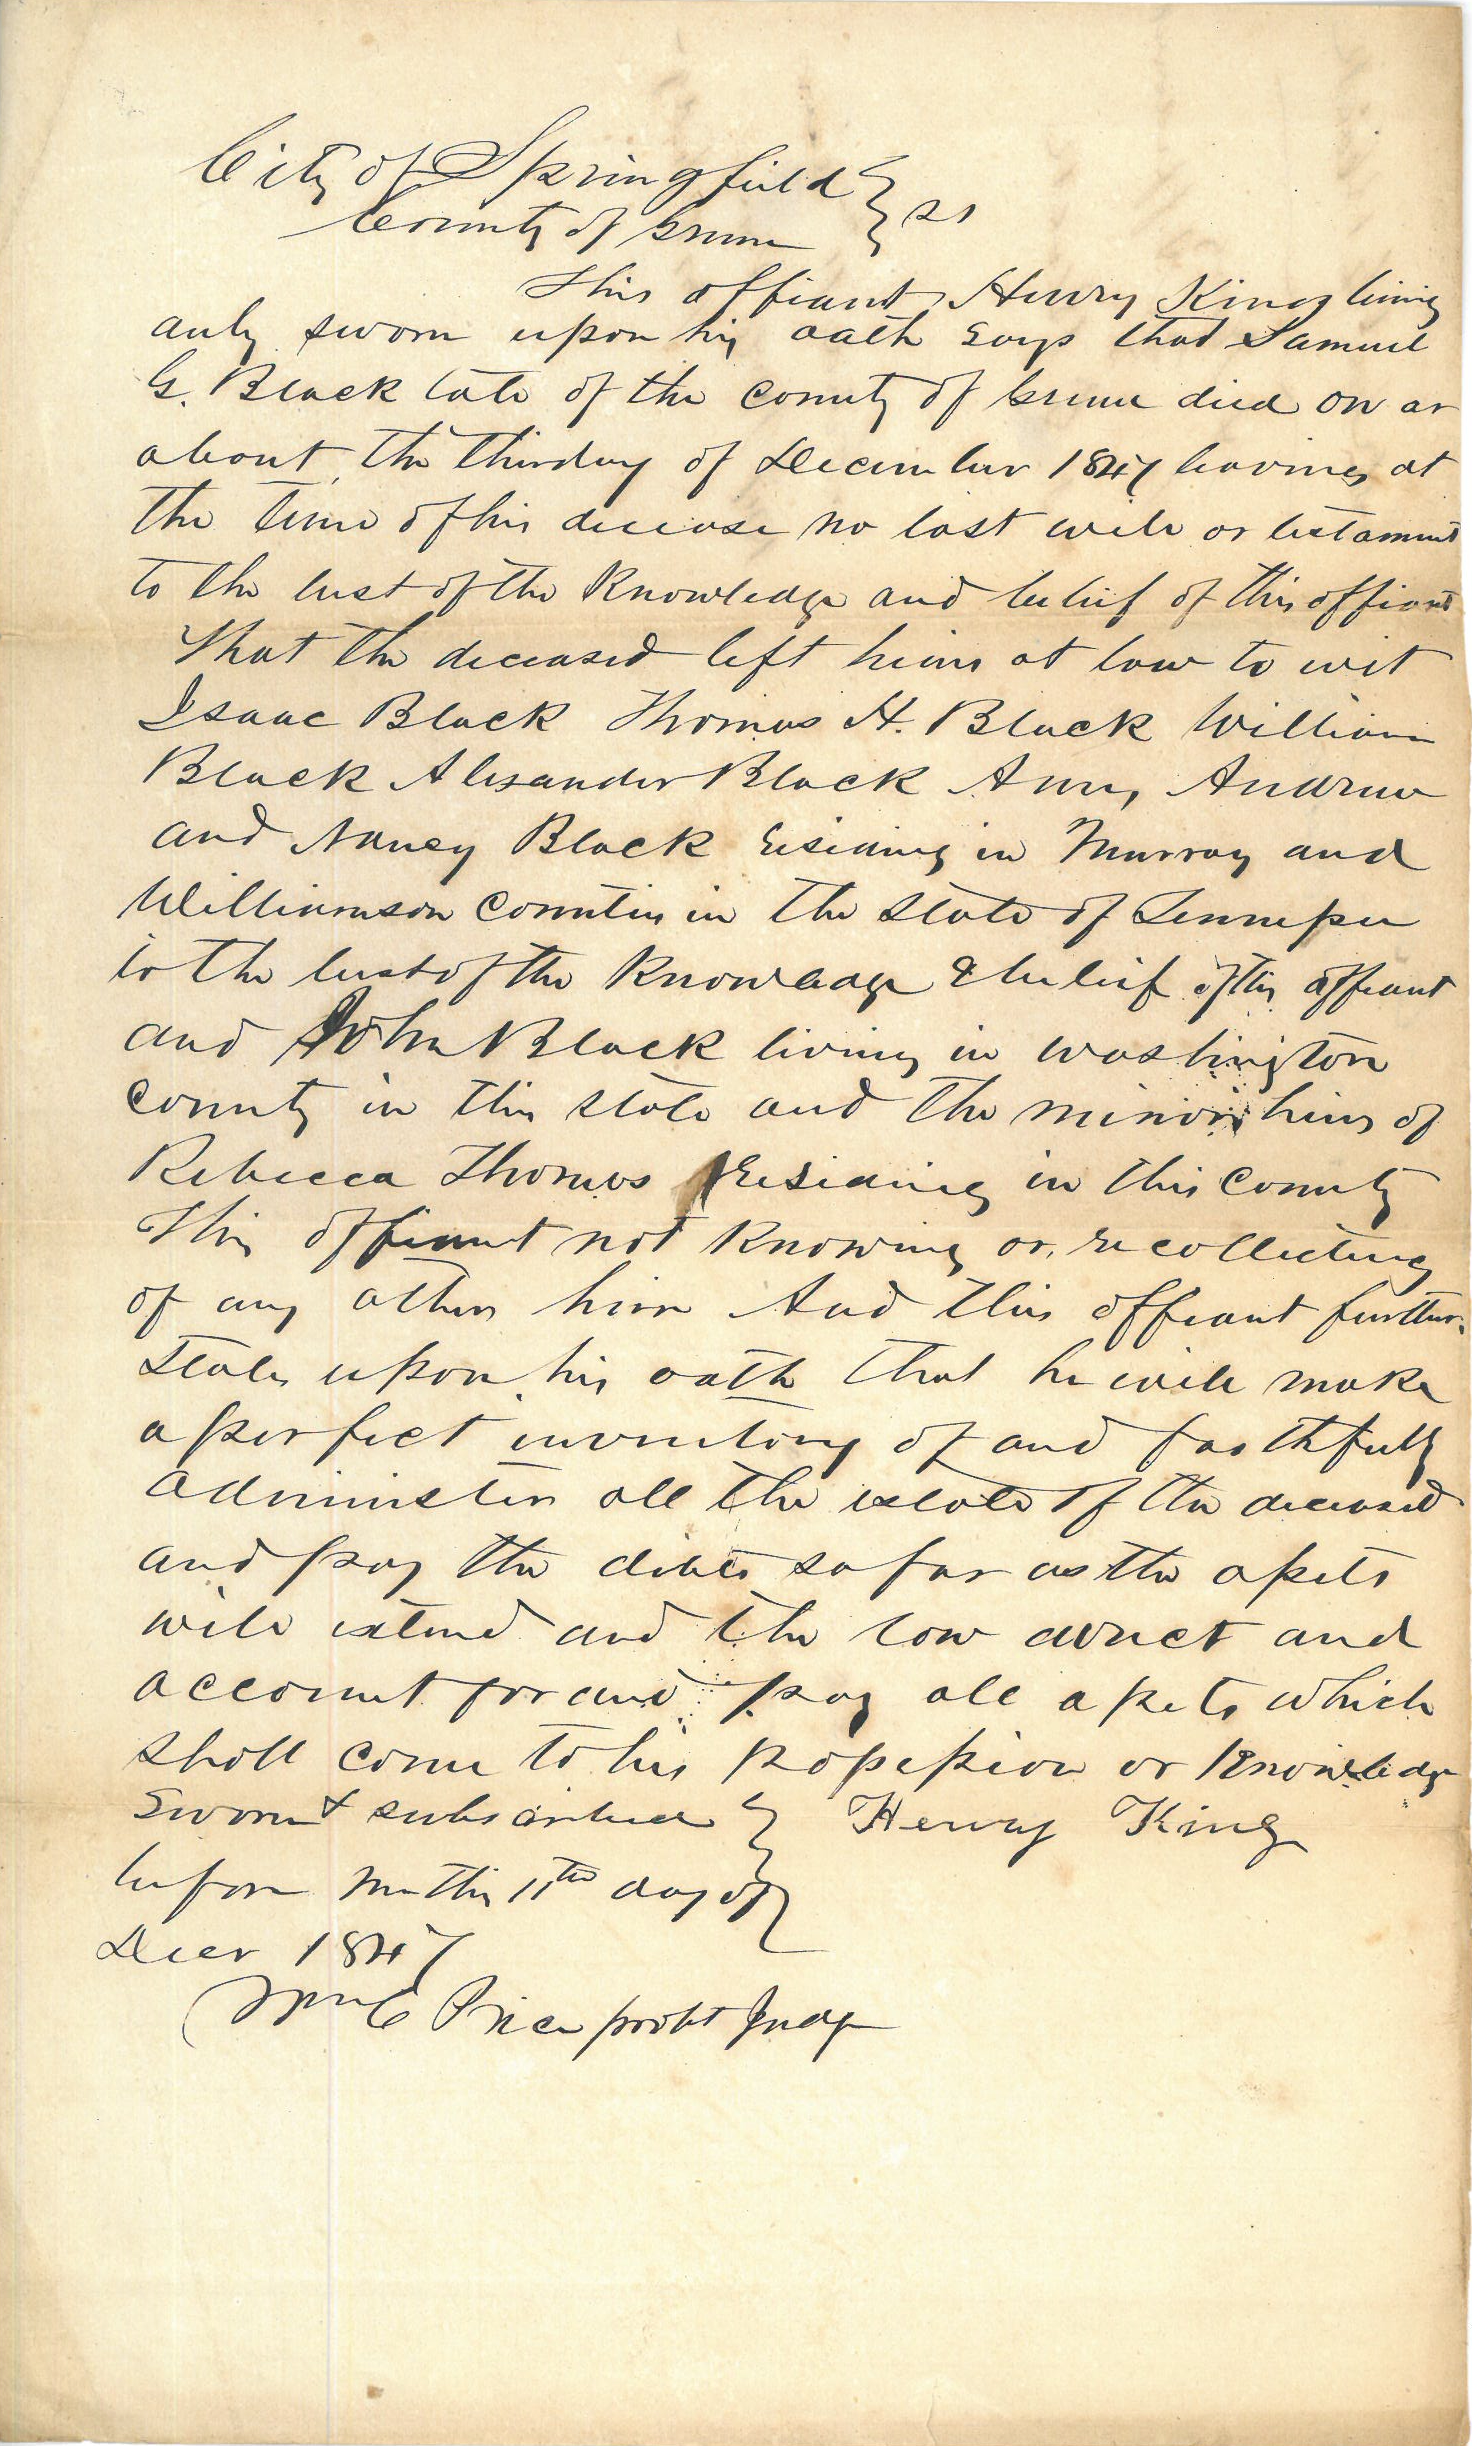 City of Springfield } ss
County of Greene
This affiant Henry King being
duly sworn upon his oath says that Samuel
G. Black late of the County of Greene died on or
about the third day of December 1847 leaving at
the time of his decease no last will or testament
to the best of the Knowledge and belief of this affiant
That the deceased left heirs at law to wit
Isaac Black Thomas H. Black William
Black Alexander Black Amy, Andrew
and Nancy Black residing in Murray and
Williamson Counties in the State of Tennessee
to the best of the Knowledge & belief of this affiant
and John Black living in Washington
County in this State and the minor heirs of
Rebecca Thomas residing in this County
This affiant not Knowing or recollecting
of any other heirs And this affiant further
States upon his oath that he will make
a perfect inventory of and faithfully
Administer all the estate of the deceased
and pay the debts so far as the assets
will extend and the law direct and
account for and pay all assets which
shall come to his possession or Knowledge
Sworn & subscribed } Henry King
before me this 11th day of
Decr 1847
Wm C Price probt Judge